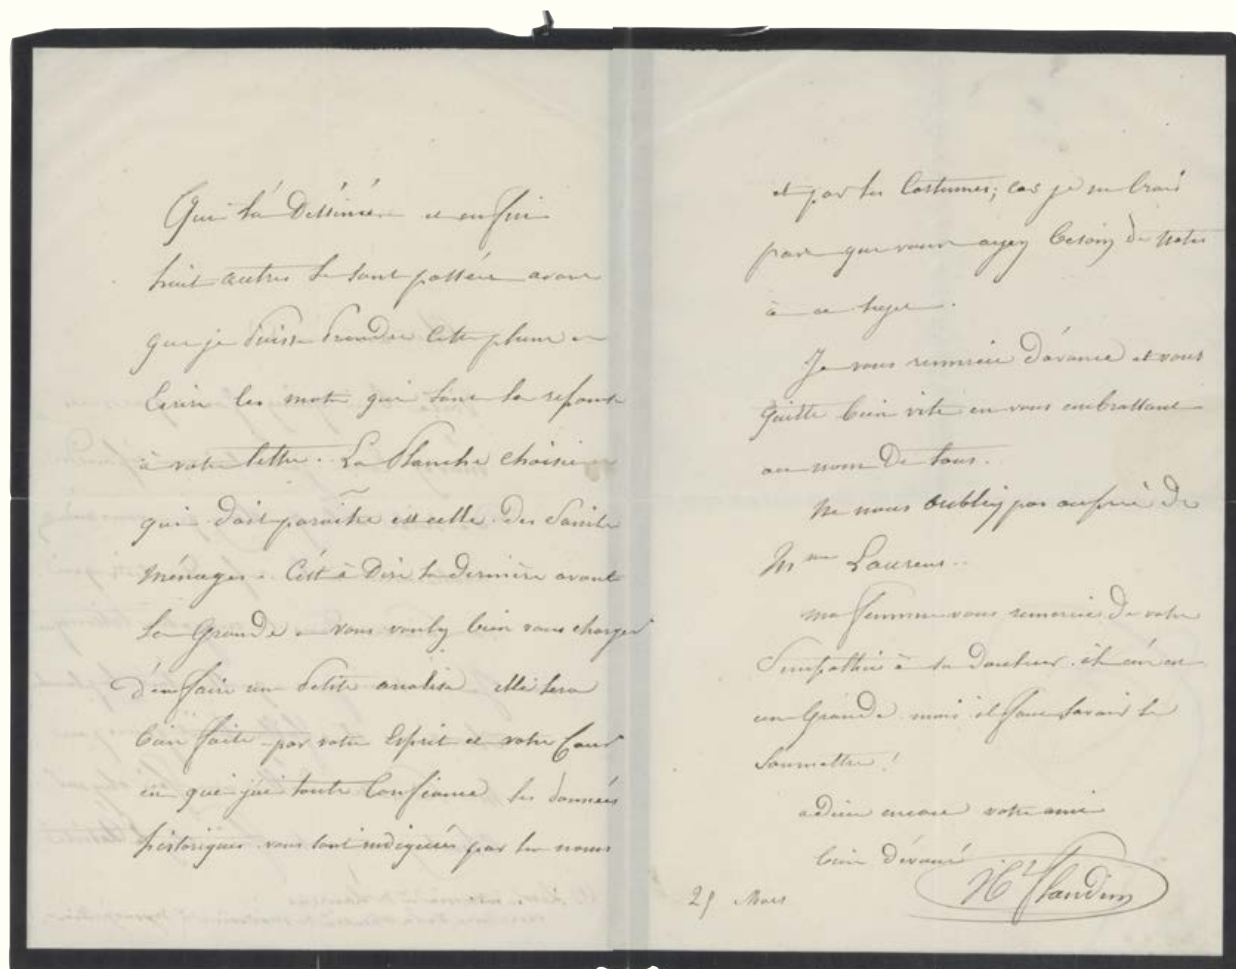 qui la Dessinée et enfin
huit autres se sont passées avant
que je Puisse Prendre cette plume et
Ecrire les mots qui sont la réponse
à votre lettre. La Planche choisie
qui doit paroître est celle des Saints
Ménages. C'est à Dire la dernière avant
la Grande. vous voulez bien vous charger
d'en faire une Petite analise elle sera
bien faite par votre Esprit et votre Cœur
en qui j'ai toute Confiance, les données
historiques vous sont indiquées par les noms
et par les Costumes; car je ne Crois
pas que vous ayez besoin de notes
à ce sujet.
Je vous remercie d'avance et vous
quitte bien vite en vous embrassant
au nom de tous.
Ne nous oubliez pas auprès de
Mme Laurens..
ma femme vous remercie de votre
Simpathie à sa Douleur. il en est
une Grande mais il faut savoir se
Soumettre!
adieu encore votre ami
bien dévoué
25 Mars
Hte Flandrin